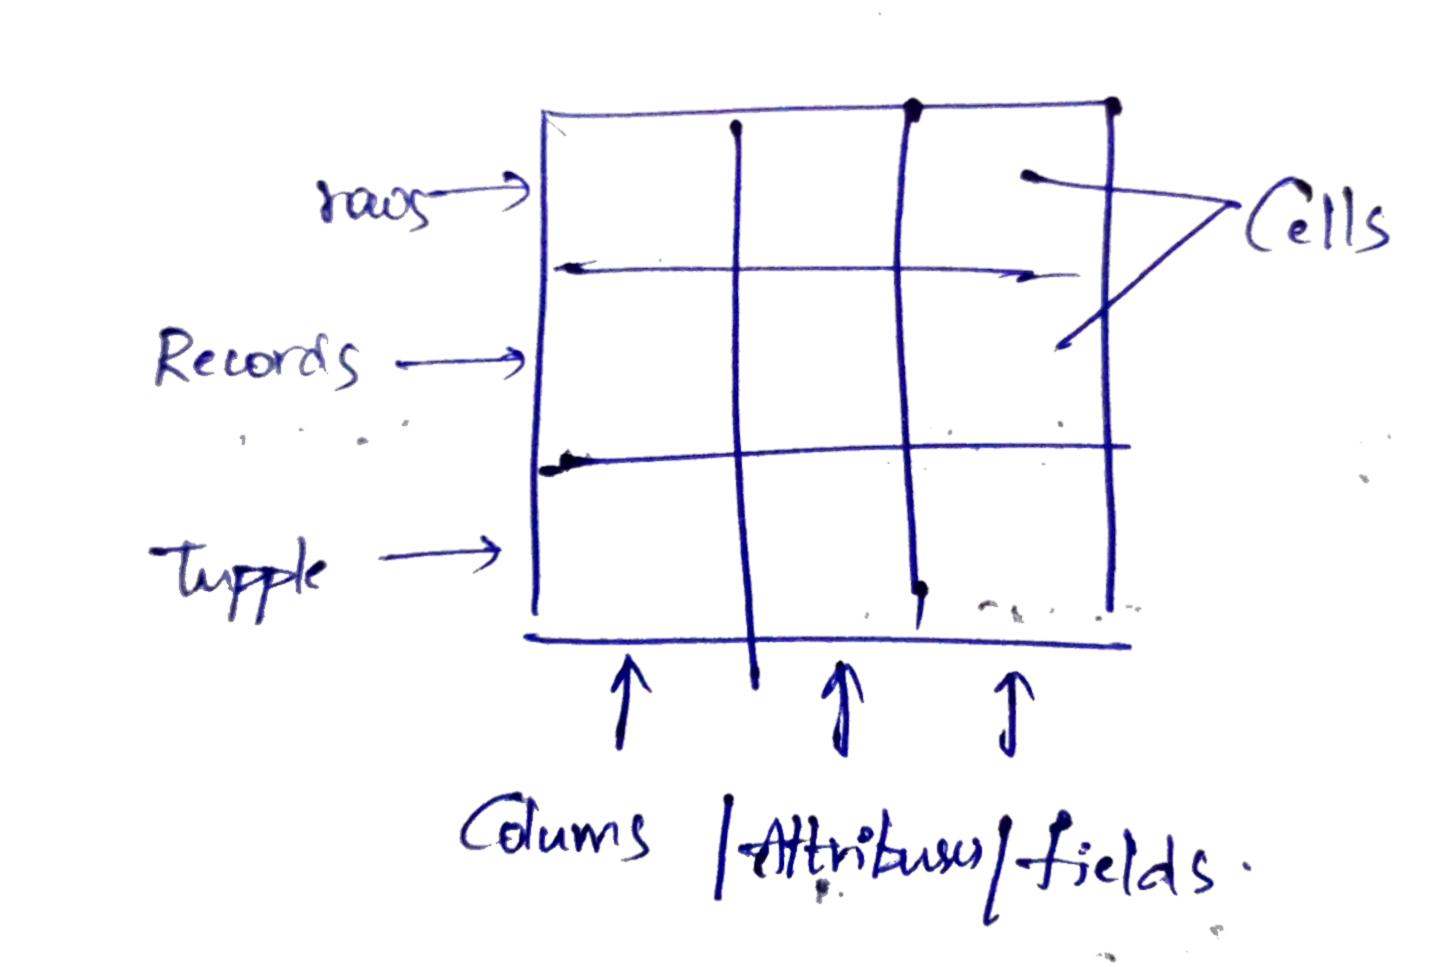 raos
Cells
Records
Tupple
Colums /Attribuses/fields.